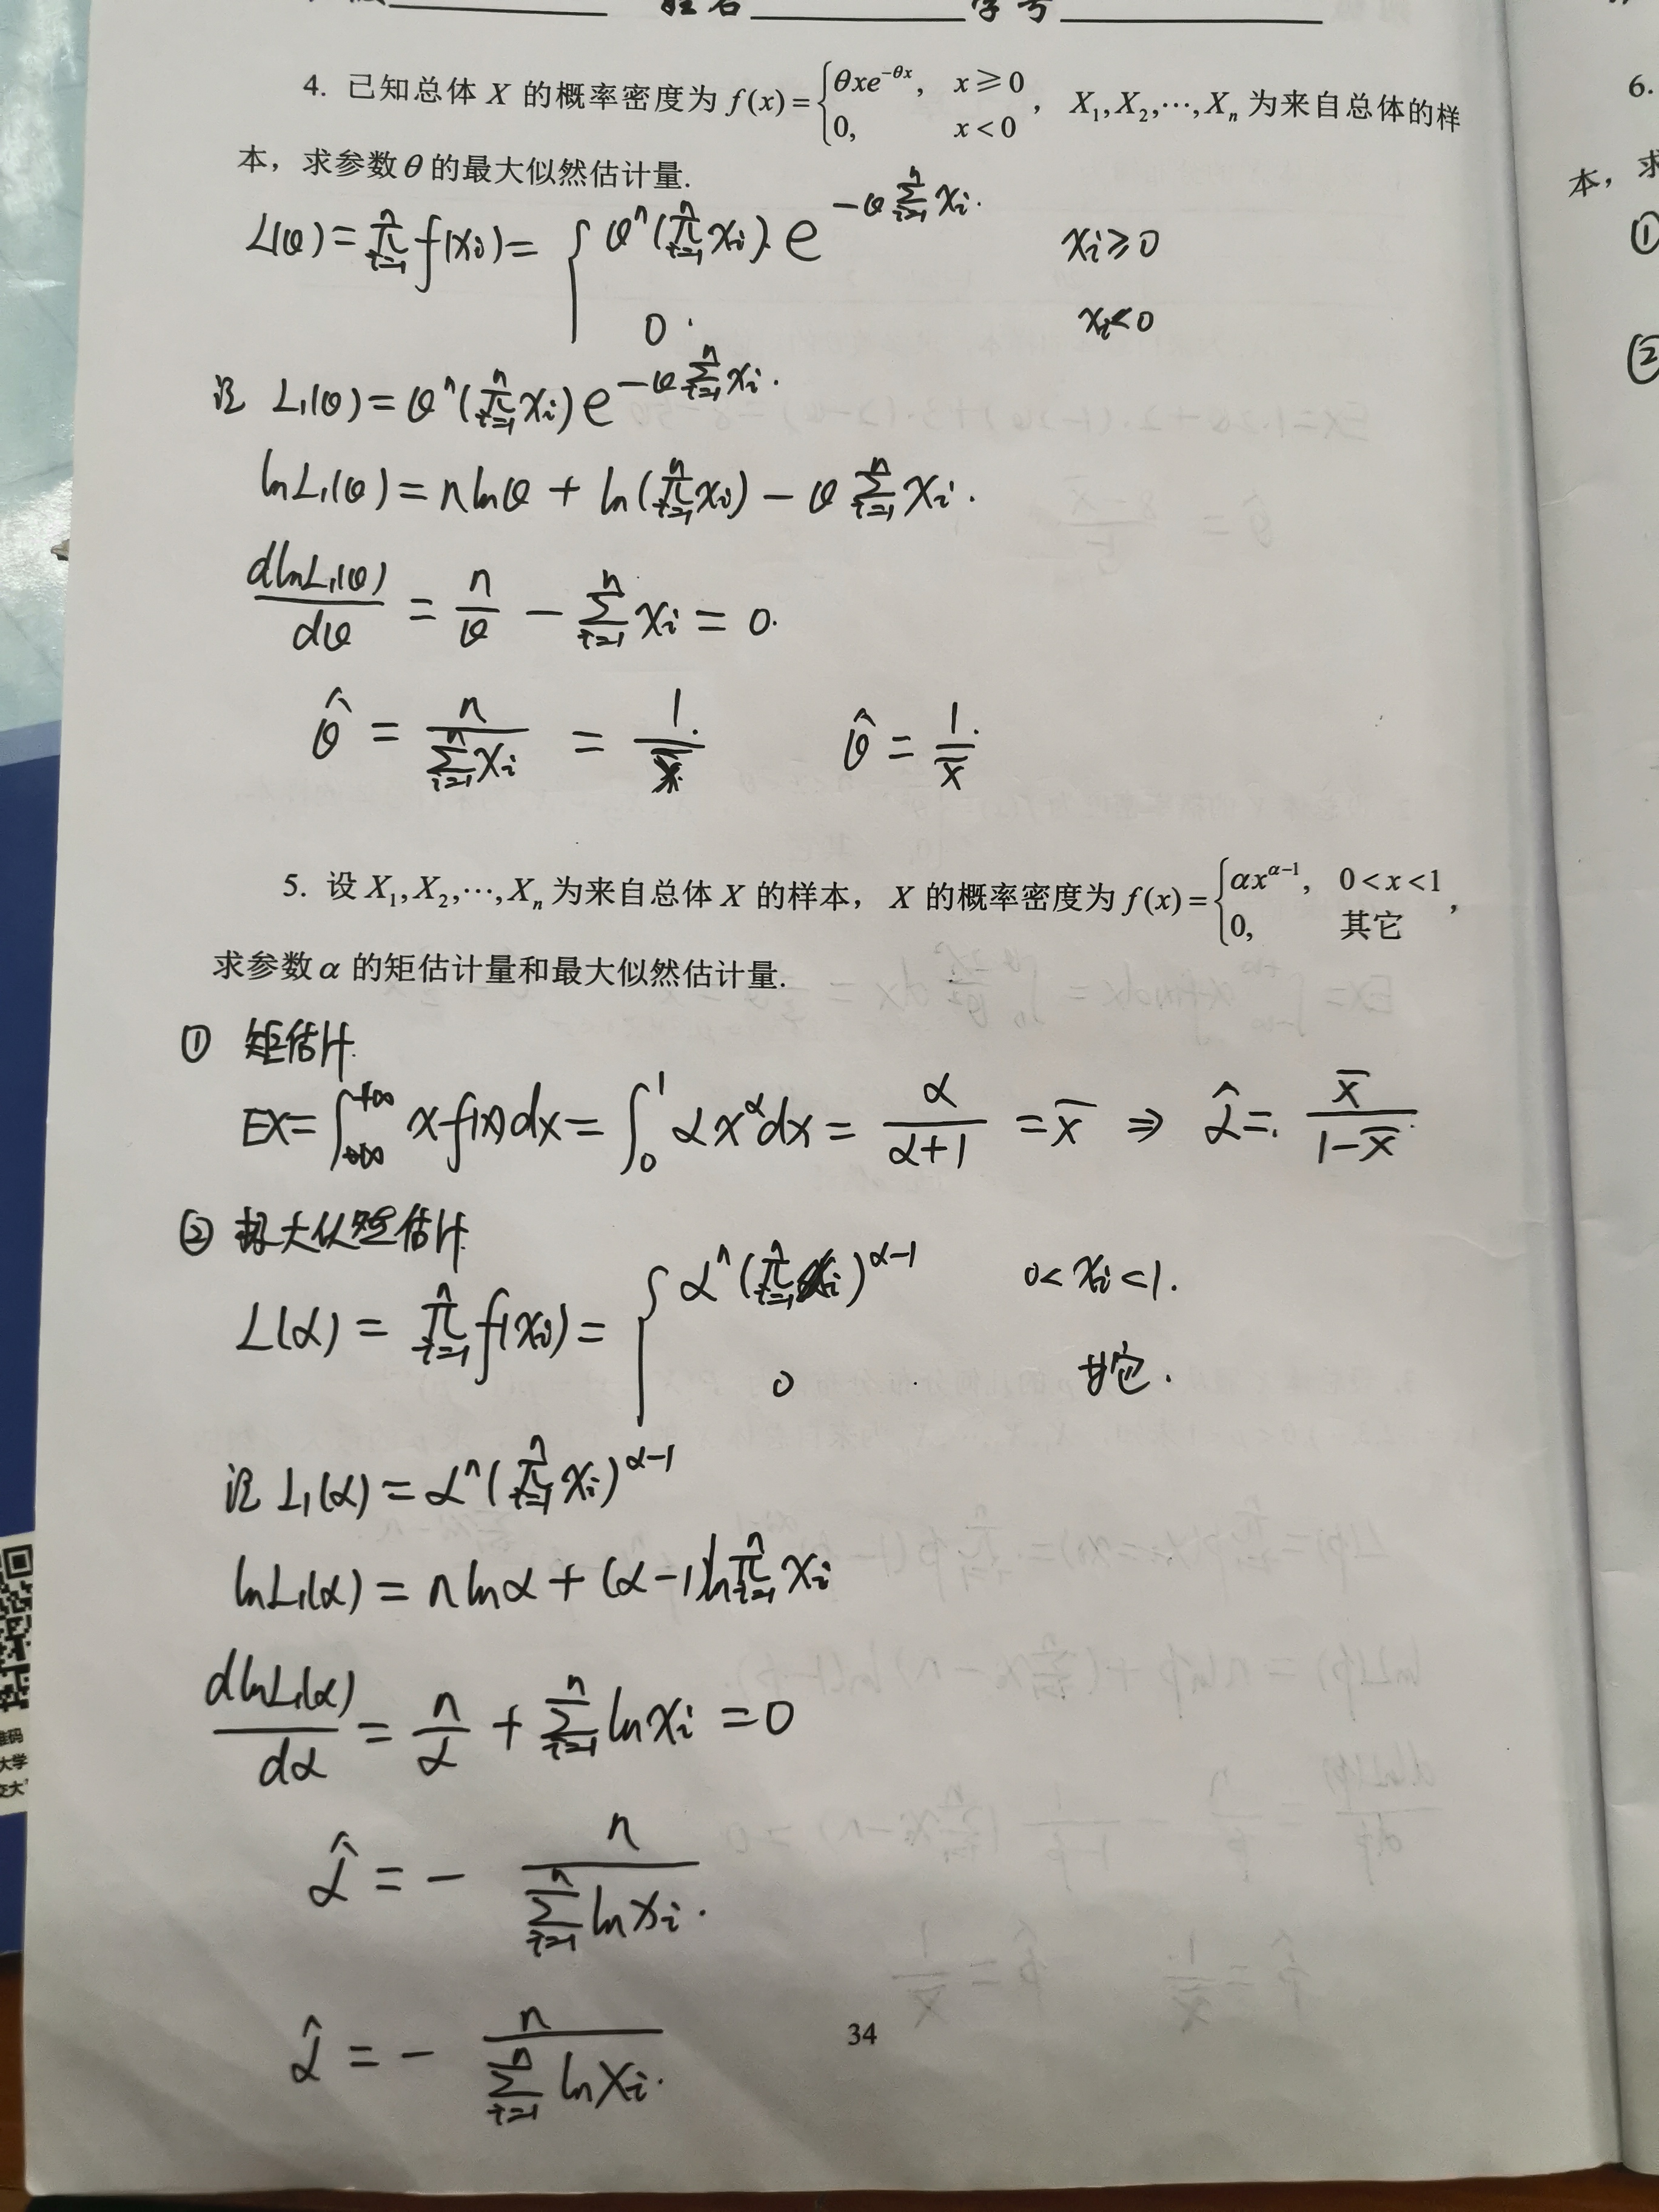 姓名________学号________
4. 已知总体 X 的概率密度为 f(x)={θxe^{-θx}, x≥0; 0, x<0, X₁,X₂,⋯,Xₙ 为来自总体的样
本，求参数θ的最大似然估计量.
L(θ)=∏_{i=1}^{n} f(xᵢ)={θⁿ(∏_{i=1}^{n} xᵢ)·e^{-θ∑_{i=1}^{n} xᵢ} xᵢ≥0; 0 xᵢ<0
记 L₁(θ)=θⁿ(∏_{i=1}^{n} xᵢ)e^{-θ∑_{i=1}^{n} xᵢ}
lnL₁(θ)=nlnθ+ln(∏_{i=1}^{n} xᵢ)-θ∑_{i=1}^{n} xᵢ.
dlnL₁(θ)/dθ=n/θ-∑_{i=1}^{n} xᵢ=0.
θ̂=n/∑_{i=1}^{n} xᵢ=1/x̄ θ̂=1/X̄
5. 设 X₁,X₂,⋯,Xₙ 为来自总体 X 的样本，X 的概率密度为 f(x)={αx^{α-1}, 0<x<1; 0, 其它,
求参数α的矩估计量和最大似然估计量.
① 矩估计
EX=∫_{-∞}^{+∞} x f(x)dx=∫₀¹ αx^α dx=α/(α+1)=X̄ ⇒ α̂=X̄/(1-X̄)
② 极大似然估计
L(α)=∏_{i=1}^{n} f(xᵢ)={αⁿ(∏_{i=1}^{n} xᵢ)^{α-1} 0<xᵢ<1. 0 其它.
记 L₁(α)=αⁿ(∏_{i=1}^{n} xᵢ)^{α-1}
lnL₁(α)=nlnα+(α-1)ln∏_{i=1}^{n} xᵢ
dlnL₁(α)/dα=n/α+∑_{i=1}^{n} lnxᵢ=0
α̂=-n/∑_{i=1}^{n} lnxᵢ.
α̂=-n/∑_{i=1}^{n} lnXᵢ.
34
6.
本，求
①
②
大学